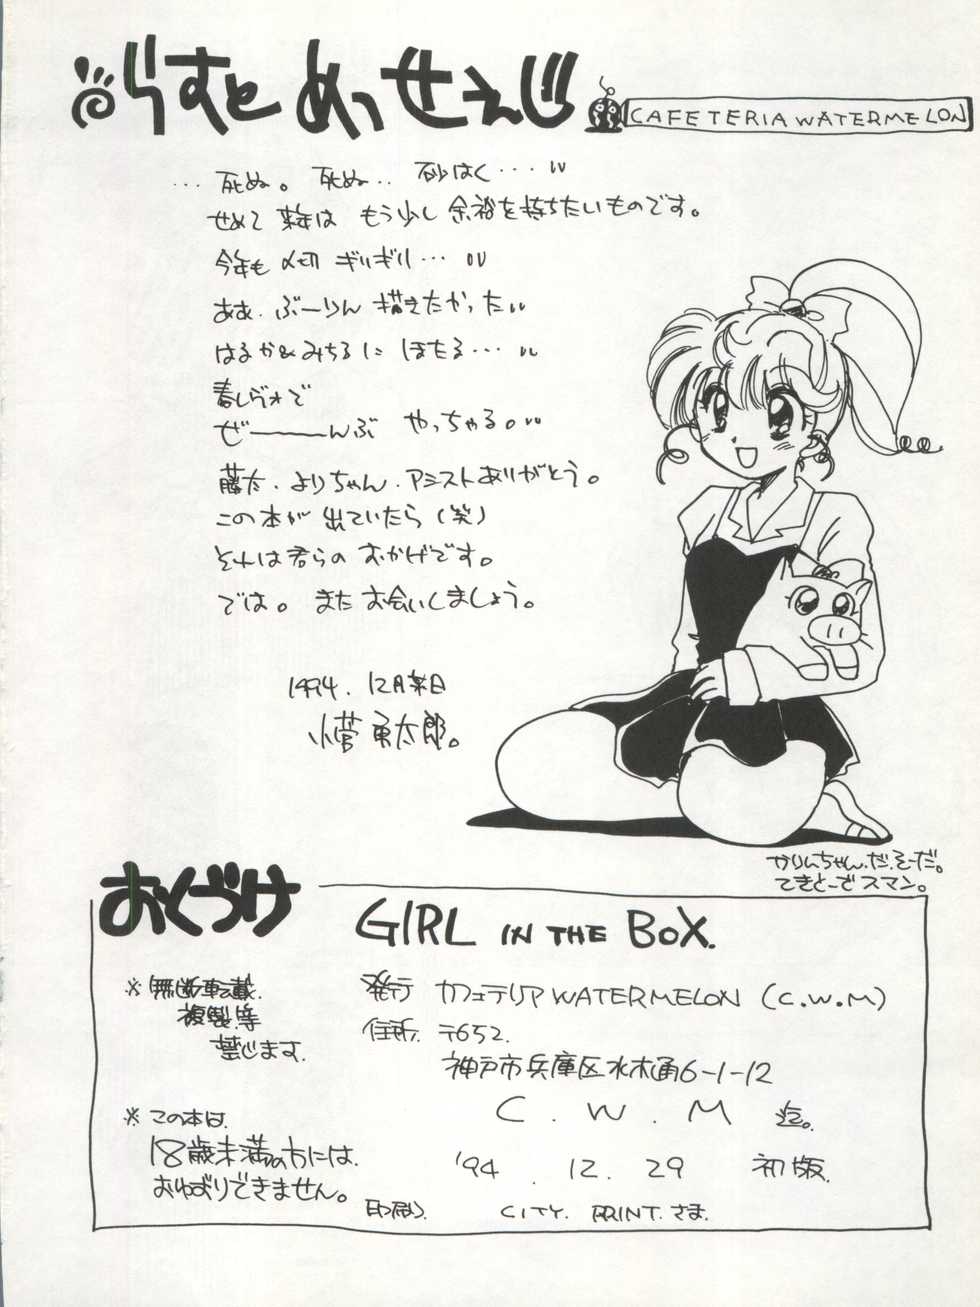 らすと めっせえじ
CAFETERIA WATERMELON
…死ぬ。死ぬ‥ 砂はく…
せめて来年は もう少し余裕を持ちたいものです。
今年も〆切 ギリギリ…
ああ、ぶーりん 描きたかった
はるか&みちるに ほたる…
春レヴォで
ぜ―――んぶ やっちゃる。
藤太、よりちゃん、アシストありがとう。
この本が 出ていたら(笑)
それは君らの おかげです。
では。またお会いしましょう。
1994. 12月末日
小菅 勇太郎。
かりんちゃん、だ、そーだ。
てきとーでスマン。
おくづけ
GIRL IN THE BOX.
※無断転載、
複製等
禁じます.
発行 カフェテリア WATERMELON (C.W.M)
住所. 〒652.
神戸市兵庫区水木通6-1-12
C.W.M 迄。
※この本は、
18歳未満の方には、
おゆずりできません。
'94.12.29 初版.
印刷 CITY. PRINT.さま.